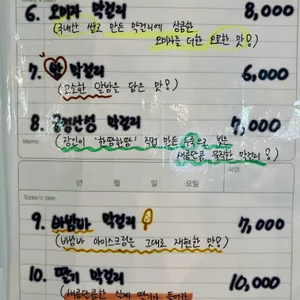 6. 오미자 막걸리 8,000
(국내산 쌀로 만든 막걸리에 상큼한
오미자를 더한 오묘한 맛!)
7. 밤 막걸리 6,000
(고소한 알밤을 담은 맛!)
8. 금정산성 막걸리 7,000
Memo
(장인이 '한땀한땀' 직접 만든 누룩으로 빚은
새콤달콤 묵직한 막걸리!)
년 월 일 요일
Today's plan
9. 바밤바 막걸리 7,000
(바밤바 아이스크림을 그대로 재현한 맛!)
10. 딸기 막걸리 10,000
(새콤달콤한 딸기가 들어간